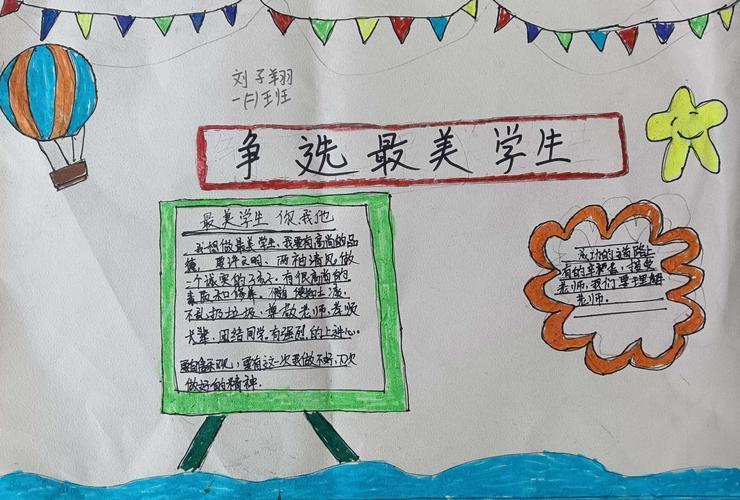 刘子翔
一(1)班
争选最美学生
最美学生 你我他
我想做最美学生,我要有高尚的品
德,要讲文明、两袖清风,做
一个诚实的孩子.有很高尚的
素质和修养。
不乱扔垃圾,尊敬老师,孝顺
长辈,团结同学,有强烈的上进心。
要自信乐观,要有这一次我做不好,下次
做好的精神.
成功的道路上
有的辛勤者,接受
老师,我们要理解
老师.